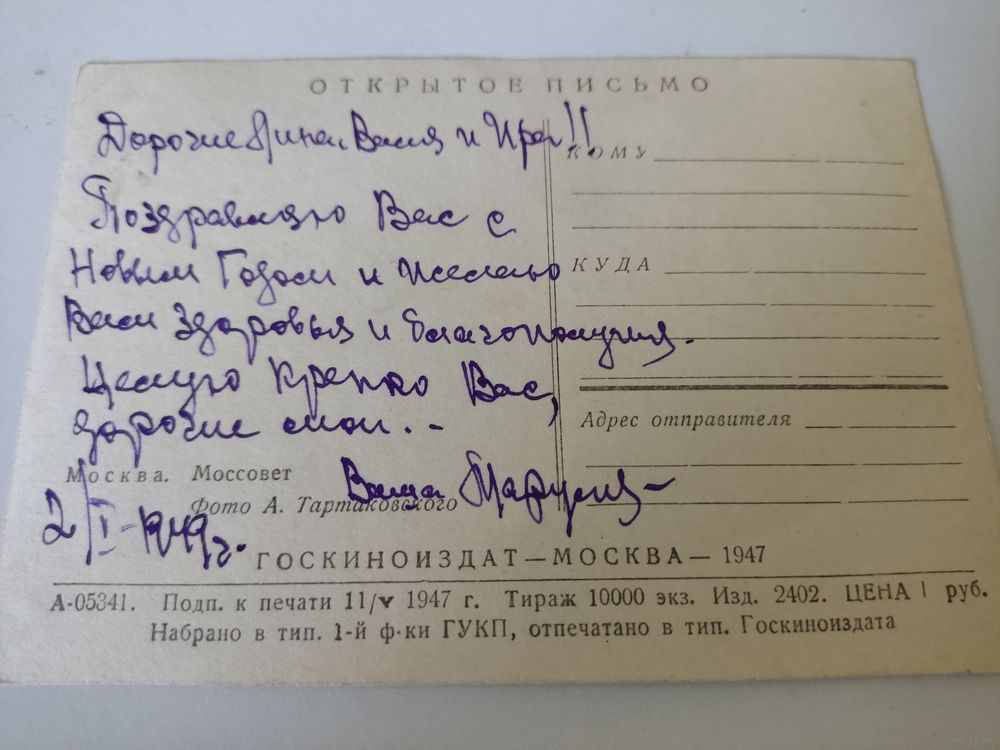 ОТКРЫТОЕ ПИСЬМО
Дорогие Нина, Ваня и Ира!!
КОМУ
Поздравляю Вас с
Новым Годом и Желаю
КУДА
Вам Здоровья и благополучия.
Целую крепко Вас,
дорогие мои..-
Адрес отправителя
Москва. Моссовет
Ваша Маруся-
Фото А. Тартаковского
2/I-1949г.
ГОСКИНОИЗДАТ—МОСКВА— 1947
А-05341. Подп. к печати 11/v 1947 г. Тираж 10000 экз. Изд. 2402. ЦЕНА 1 руб.
Набрано в тип. 1-й ф-ки ГУКП, отпечатано в тип. Госкиноиздата